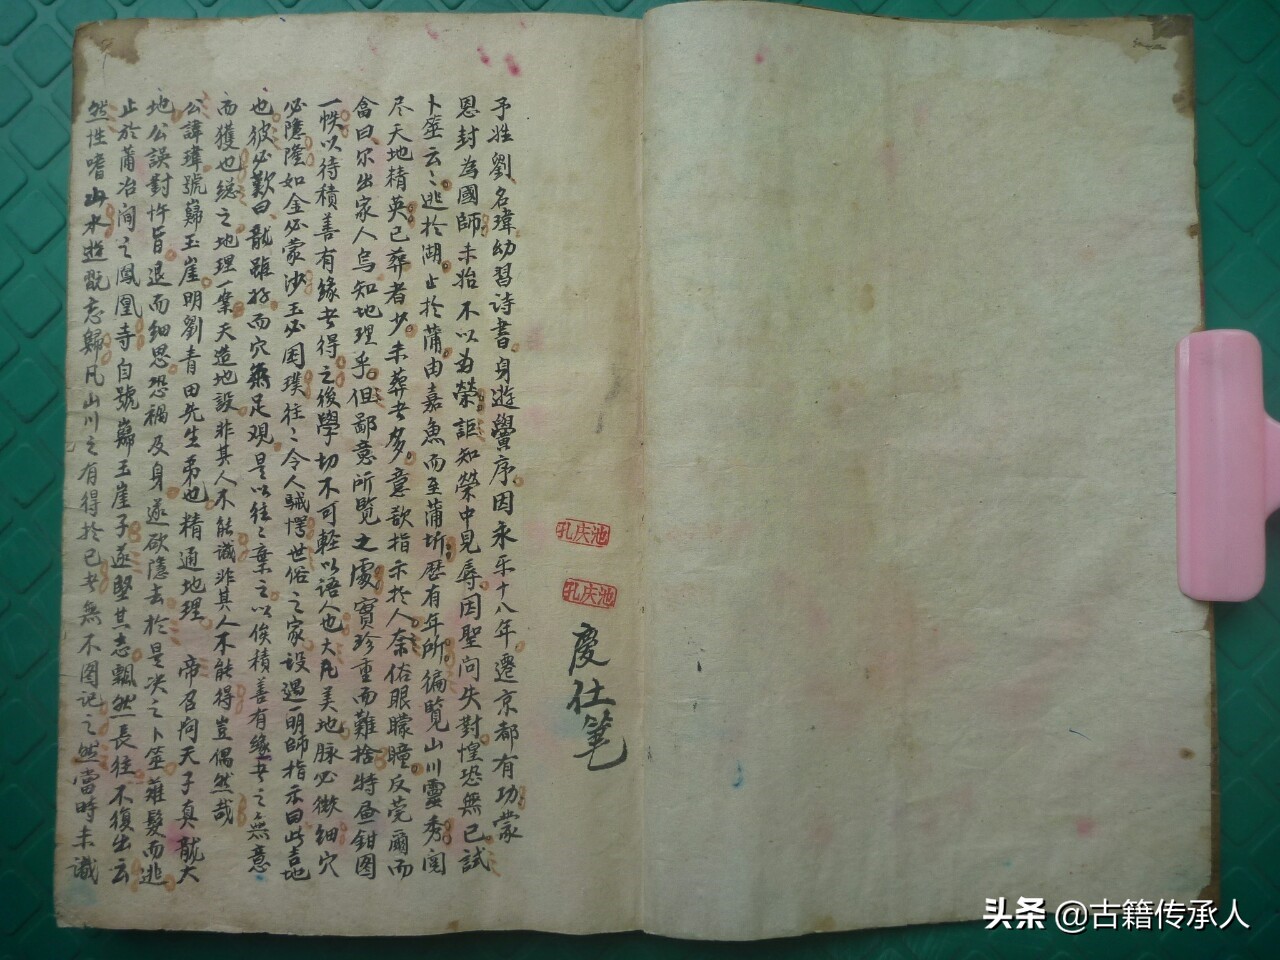 孔庆池
孔庆池
慶仕笔
予姓劉名瑋幼習诗書身遊黌序因永乐十八年遷京都有功蒙
恩封為國師未始不以为榮詎知榮中見辱因聖问失對惶恐無已試
卜筮云〻逃於湖止於蒲由嘉魚而至蒲圻歷有年所徧覽山川靈秀阅
尽天地精英已葬者少未葬者多意欲指示於人奈俗眼矇瞳反莞爾而
言曰尔出家人乌知地理乎但鄙意所览之處寳珍重而難捨特叠鉗图
一帙以待積善有缘者得之後學切不可輕以语人也大凡美地脉必微细穴
必隱隆如金必蒙沙玉必困璞往〻令人駴愕世俗之家设遇一明師指示曰此吉地
也彼必歎曰龍雖好而穴無足观是以往〻棄之以俟積善有缘者之無意
而獲也総之地理一案天造地設非其人不能識非其人不能得豈偶然哉
公諱瑋號巋玉崖明劉青田先生弟也精通地理 帝召问天子真龍大
地公誤對忤旨退而细思恐禍及身遂欲隱去於是决之卜筮薙髮而逃
止於蒲冶间之鳳凰寺自號巋玉崖子遂堅其志飄然長往不復出云
然性嗜山水遊輒忘歸凡山川之有得於己者無不图记之然當時未識
头条 @古籍传承人